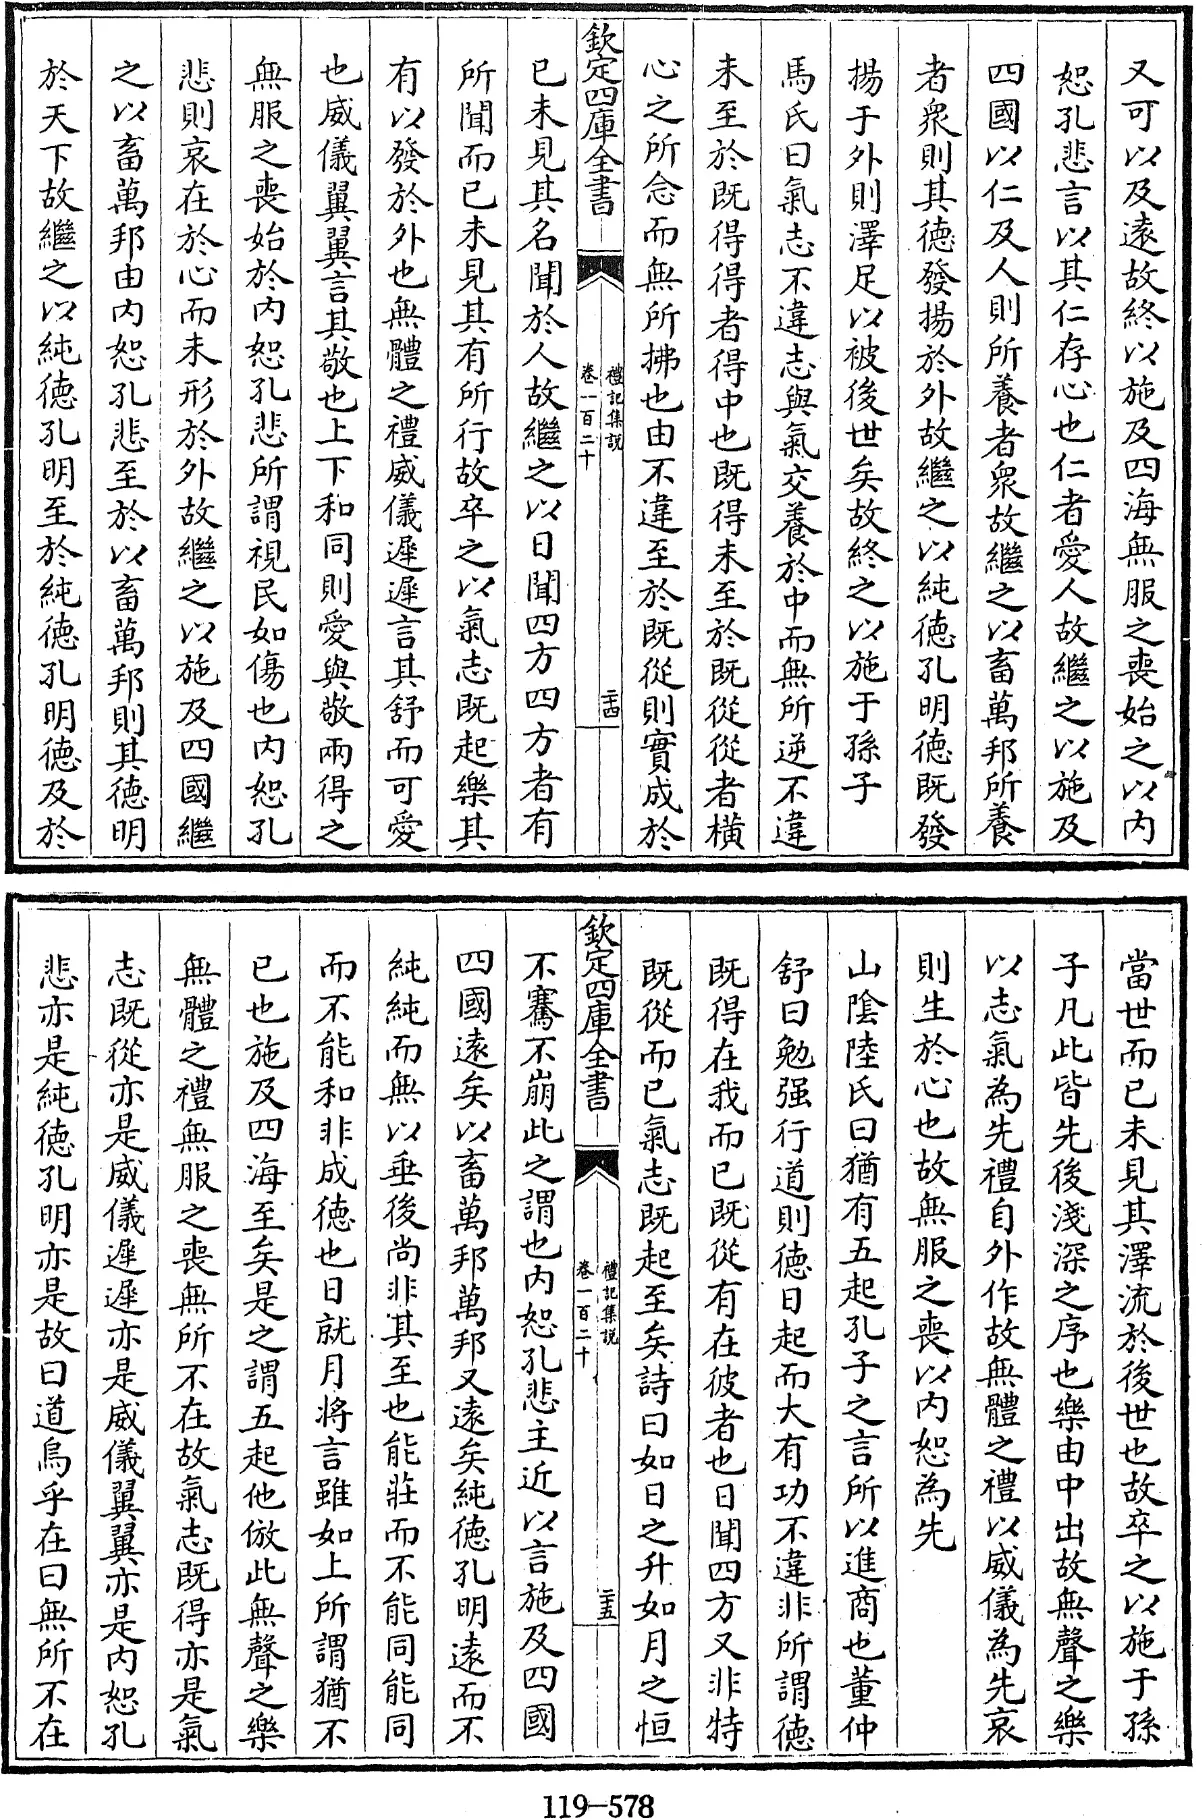 又可以及遠故終以施及四海無服之喪始之以内
恕孔悲言以其仁存心也仁者愛人故繼之以施及
四國以仁及人則所養者衆故繼之以畜萬邦所養
者衆則其德發揚於外故繼之以純德孔明德既發
揚于外則澤足以被後世矣故終之以施于孫子
馬氏曰氣志不違志與氣交養於中而無所逆不違
未至於既得得者得中也既得未至於既從從者橫
心之所念而無所拂也由不違至於既從則實成於
欽定四庫全書
禮記集説
卷一百二十
二十四
已未見其名聞於人故繼之以日聞四方四方者有
所聞而已未見其有所行故卒之以氣志既起樂其
有以發於外也無體之禮威儀遲遲言其舒而可愛
也威儀翼翼言其敬也上下和同則愛與敬兩得之
無服之喪始於内恕孔悲所謂視民如傷也内恕孔
悲則哀在於心而未形於外故繼之以施及四國繼
之以畜萬邦由内恕孔悲至於以畜萬邦則其德明
於天下故繼之以純德孔明至於純德孔明德及於
當世而已未見其澤流於後世也故卒之以施于孫
子凡此皆先後淺深之序也樂由中出故無聲之樂
以志氣為先禮自外作故無體之禮以威儀為先哀
則生於心也故無服之喪以内恕為先
山陰陸氏曰猶有五起孔子之言所以進商也董仲
舒曰勉强行道則德日起而大有功不違非所謂德
既得在我而已既從有在彼者也日聞四方又非特
既從而已氣志既起至矣詩曰如日之升如月之恒
欽定四庫全書
禮記集説
卷一百二十
二十五
不騫不崩此之謂也内恕孔悲主近以言施及四國
四國遠矣以畜萬邦萬邦又遠矣純德孔明遠而不
純純而無以垂後尚非其至也能莊而不能同能同
而不能和非成德也日就月將言雖如上所謂猶不
已也施及四海至矣是之謂五起他倣此無聲之樂
無體之禮無服之喪無所不在故氣志既得亦是氣
志既從亦是威儀遲遲亦是威儀翼翼亦是内恕孔
悲亦是純德孔明亦是故曰道烏乎在曰無所不在
119-578